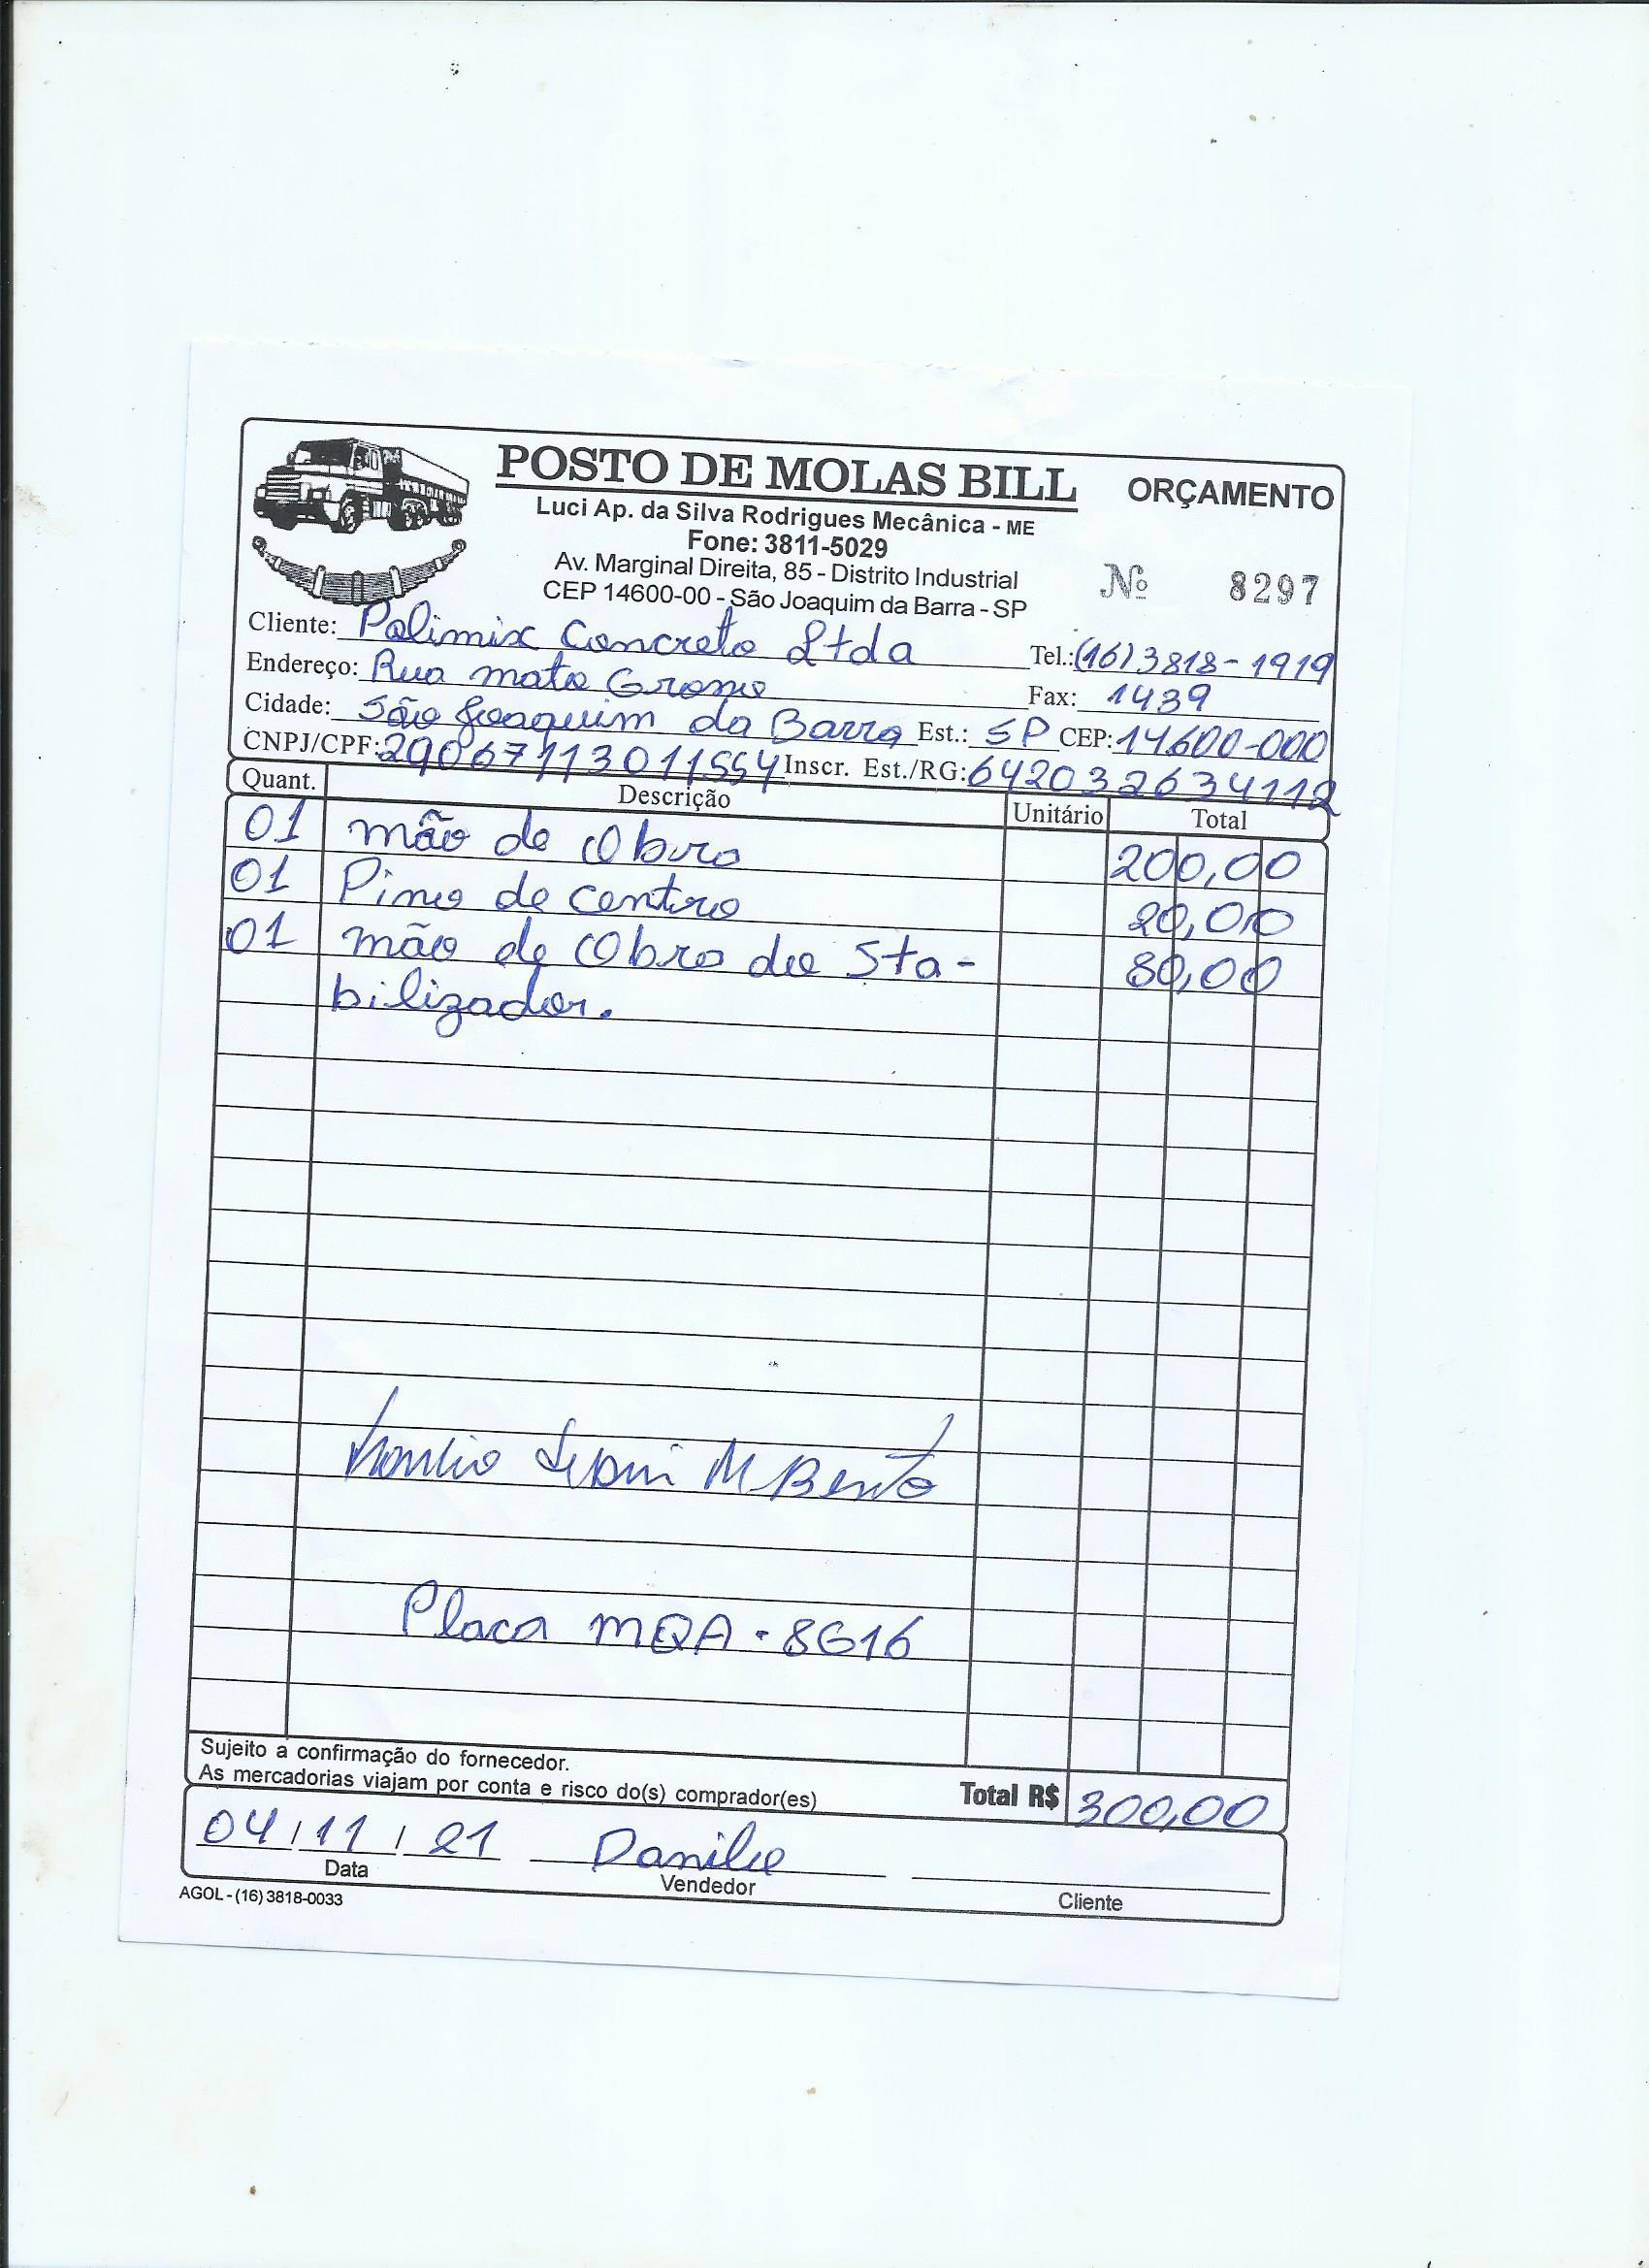 POSTO DE MOLAS BILL
ORÇAMENTO
Luci Ap. da Silva Rodrigues Mecânica - ME
Fone: 3811-5029
Av. Marginal Direita, 85 - Distrito Industrial
CEP 14600-00 - São Joaquim da Barra - SP
Nº 8297
Cliente: Polimix Concreto Ltda Tel.: (16) 3818-1919
Endereço: Rua mato Grosso Fax: 1439
Cidade: São Joaquim da Barra Est.: SP CEP: 14600-000
CNPJ/CPF: 29067113011554 Inscr. Est./RG: 642032634112
Quant. Descrição Unitário Total
01 mão de Obra 200,00
01 Pino de centro 20,00
01 mão de Obra do Sta- 80,00
bilizador.
M Bento
Placa MQA-8G16
Sujeito a confirmação do fornecedor.
As mercadorias viajam por conta e risco do(s) comprador(es)
Total R$ 300,00
04/11/21 Danilo
Data Vendedor Cliente
AGOL - (16) 3818-0033